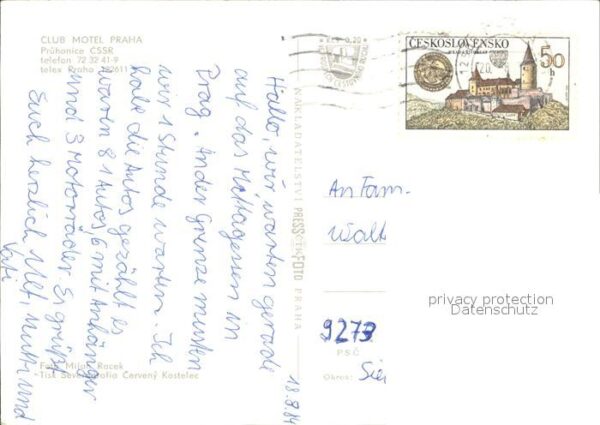 CLUB MOTEL PRAHA
Průhonice ČSSR
telefon 72 32 41-9
telex Praha
Hallo, wir warten gerade
auf das Mittagessen in
Prag. An der Grenze mussten
wir 1 Stunde warten. Ich
habe die Autos gezählt es
waren 81 Autos, 6 mit Anhänger
und 3 Motorräder. Es grüßt
Euch herzlich Mutti und
Vati
18.8.84
NAKLADATELSTVÍ PRESSFOTO PRAHA
Kčs 0,20
ČESKOSLOVENSKO
50
h
An Fam.
Walt
privacy protection
Datenschutz
9273
PSČ
Okres:
Foto Milan Racek
Tisk Severografia Červený Kostelec